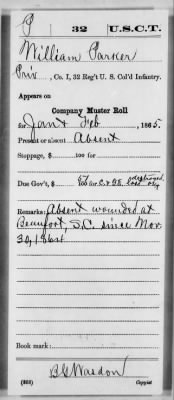 P 32 U.S.C.T.
William Parker
Priv, Co. I, 32 Reg't U. S. Col'd Infantry.
Appears on
Company Muster Roll
for Jan & Feb, 1865.
Present or absent Absent
Stoppage, $ 100 for
Due Gov't, $ 100 for C. & G. E. destroyed
lost
Remarks: Absent wounded at
Beaufort, S.C. since Nov.
30, 1864
Book mark:
(358) Copyist